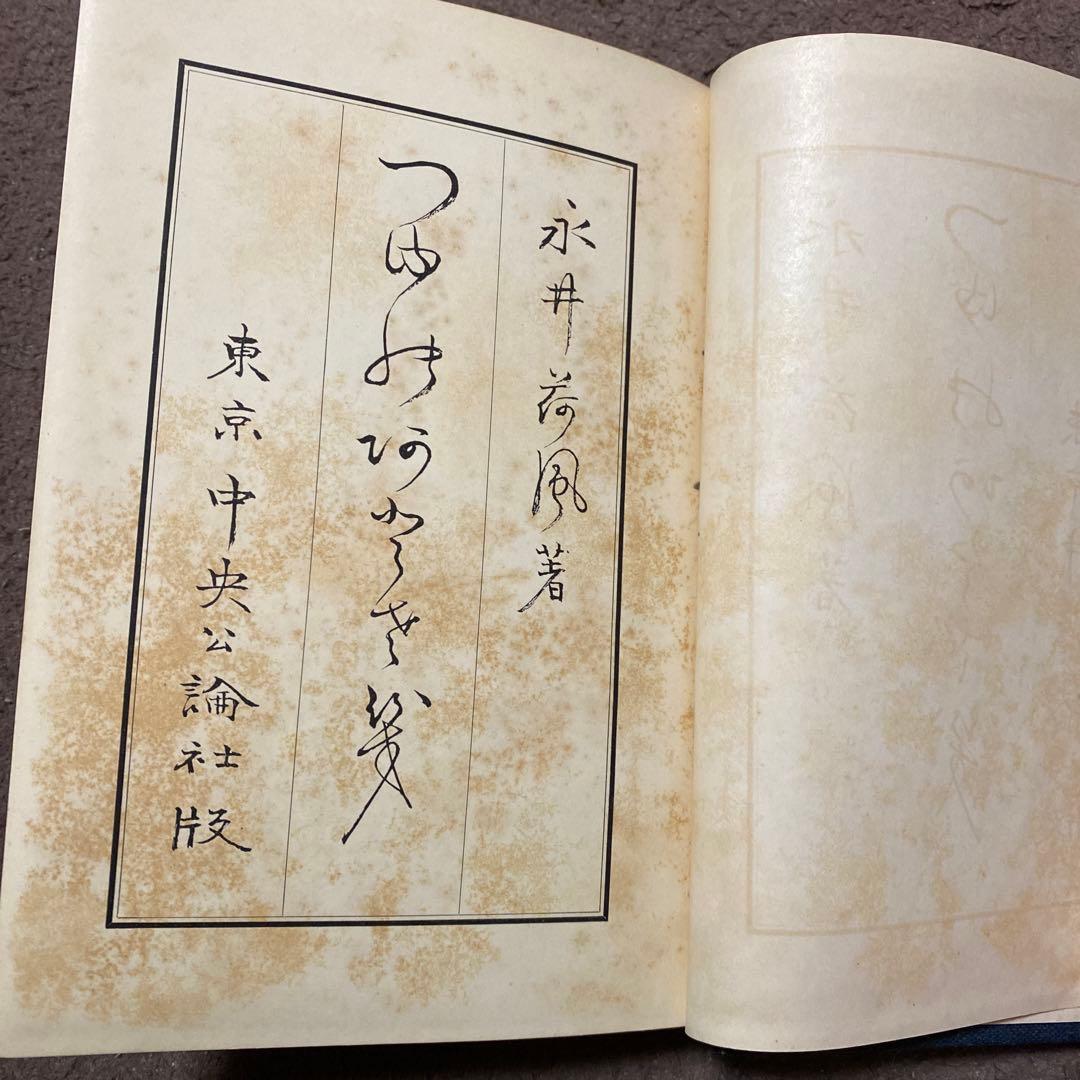 永井荷風著
つゆのあとさき
東京中央公論社版